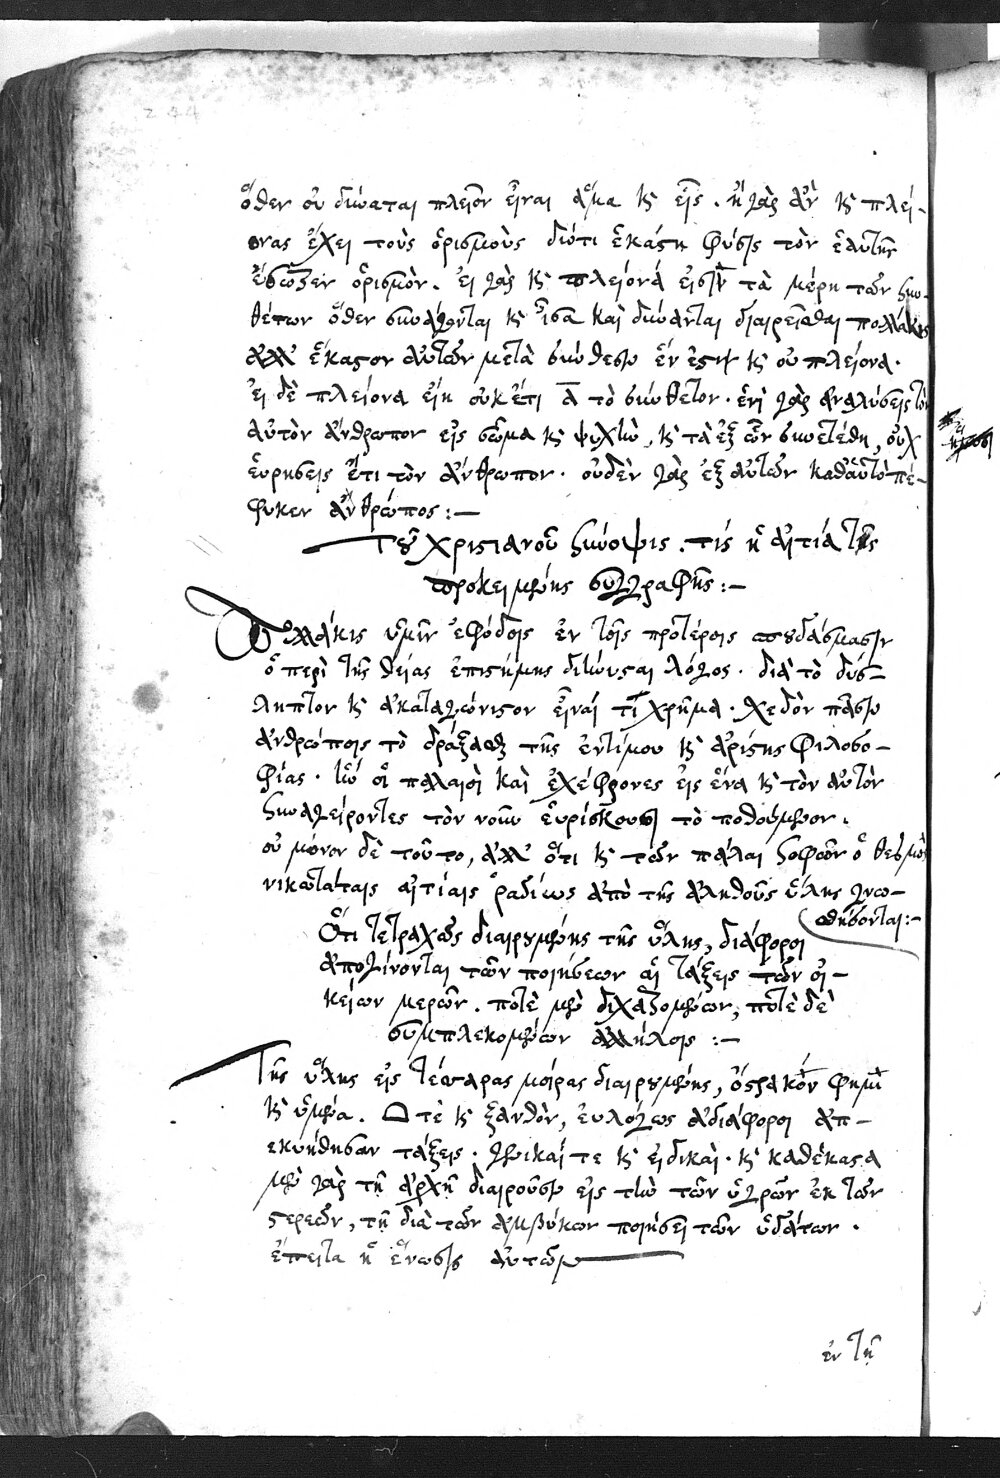 244
ὅθεν οὐ δύναται πλεῖον εἶναι ἅμα κ̀ εἷς. ἢ γὰρ ἂν κ̀ πλεί-
ονας ἔχει τοὺς ὁρισμοὺς διότι ἑκάστη φύσις τὸν ἑαυτῆς
ἔσωζεν ὁρισμὸν. εἰ γὰρ κ̀ πλείονά εἰσὶν τὰ μέρη τῶν συν-
θέτων ὅθεν συνάγονται κ̀ ἴσα καὶ δύνανται διαιρεῖσθαι πολλάκις
ἀλλ' ἕκαστον αὐτῶν μετὰ σύνθεσιν ἕν ἐστιν κ̀ οὐ πλείονα.
εἰ δὲ πλείονα εἴη οὐκέτι ᾱ τὸ σύνθετον. ἐπὶ γὰρ ἀναλύσεις τὸν
αὐτὸν ἄνθρωπον εἰς σῶμα κ̀ ψυχὴν, κ̀ τὰ ἐξ ὧν συνετέθη, οὐχ
εὑρήσεις ἔτι τὸν ἄνθρωπον. οὐδὲν γὰρ ἐξ αὐτῶν καθ' αὑτὸ πέ-
φυκεν ἄνθρωπος:—
τοῦ χριστιανοῦ σύνοψις. τίς ἡ αἰτία τῆς
προκειμένης συγγραφῆς:—
Πολλάκις ὑμῖν ἐφόδοις ἐν τοῖς προτέροις σπουδάσμασιν
ὁ περὶ τῆς θείας ἐπιστήμης διήνυσται λόγος. διὰ τὸ δύσ-
ληπτον κ̀ ἀκαταγώνιστον εἶναί τι χρῆμα. σχεδὸν πᾶσιν
ἀνθρώποις τὸ δράξασθαι τῆς ἐντίμου κ̀ ἀρίστης φιλοσο-
φίας. ἣν οἱ παλαιοὶ καὶ ἐχέφρονες εἰς ἕνα κ̀ τὸν αὐτὸν
συναγείροντες τὸν νοῦν εὑρίσκουσι τὸ ποθούμενον.
οὐ μόνον δὲ τοῦτο, ἀλλ' ὅτι κ̀ τῶν πάλαι σοφῶν ὁ θεσμὸς
νικωτάταις αἰτίαις ῥαδίως ἀπὸ τῆς ἀληθοῦς ὕλης γνω-
σθήσονται:—
Ὅτι τετραχῶς διαιρουμένης τῆς ὕλης, διάφοροι
ἀπογίνονται τῶν ποιήσεων αἱ τάξεις τῶν οἰ-
κείων μερῶν. ποτὲ μὲν διχαζομένων, ποτὲ δὲ
συμπλεκομένων ἀλλήλοις:—
Τῆς ὕλης εἰς τέσσαρας μοίρας διαιρουμένης, ὄστρακόν φημι
κ̀ ὑμένα. Ὠόν τὲ κ̀ ξανθὸν, εὐλόγως ἀδιάφοροι ἀπ-
εκυήθησαν τάξεις. γενικαί τε κ̀ εἰδικαὶ. κ̀ καθέκαστα
μὲν γὰρ τῇ ἀρχῇ διαιροῦσιν εἰς τὴν τῶν ὑγρῶν ἐκ τῶν
στερεῶν, τῇ διὰ τῶν ἀμβύκων ποιήσει τῶν ὑδάτων.
ἔπειτα ἡ ἕνωσις αὐτῶν
ἐν τῇ